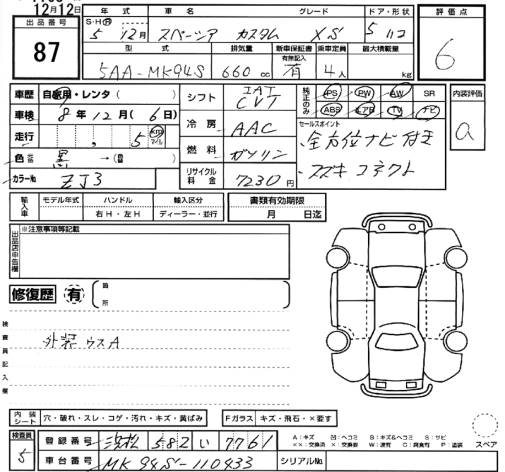 12月12日
出品番号
87
年式 車名 グレード ドア・形状
S・H・R 5年 12月 スペーシア カスタム XS 5 ハコ
型式 排気量 新車保証書 乗車定員 最大積載量
有無記入
5AA-MK94S 660 cc 有 4人 kg
評価点
6
車歴 自家用・レンタ( )
車検 8年 12月 ( 6日)
走行 5 km マイル
色 元色 黒 → (色 )
カラーNo ZJ3
シフト IAT CVT
冷房 AAC
燃料 ガソリン
リサイクル料金 7230円
純正のみ PS PW AW SR
ABS エアB TV ナビ
セールスポイント
・全方位ナビ付き
・スズキコネクト
内装評価
a
輸入車 モデル年式 ハンドル 輸入区分
右H・左H ディーラー・並行
書類有効期限
月 日迄
出品店申告欄
※注意事項等記載
修復歴 有 箇所
検査員記入欄
外装 ウスA
内装シート 穴・破れ・スレ・コゲ・汚れ・キズ・黄ばみ
Fガラス キズ・飛石・×要す
検査員
5
登録番号 浜松 582 い 7761
車台番号 MK94S-110933
シリアルNo.
A:キズ 凹:ヘコミ B:キズ&ヘコミ S:サビ
××:交換済 ×:要交換 W:波有 C:腐食有 P:塗装
スペア